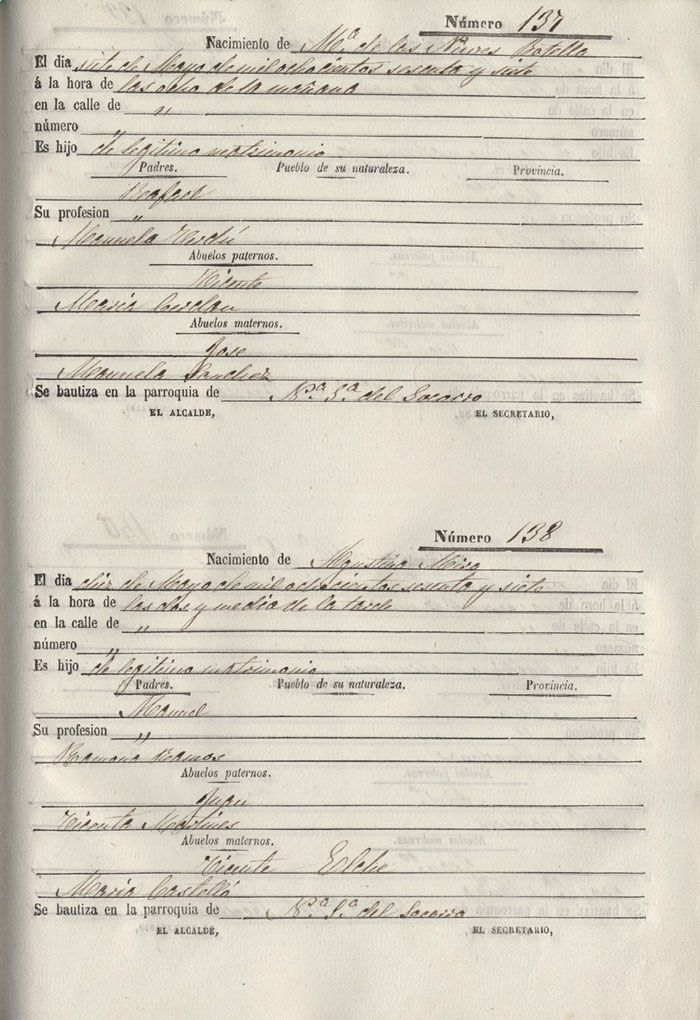 Número 137
Nacimiento de Mª de las Nieves Botella
El dia siete de Mayo de mil ochocientos sesenta y siete
á la hora de las ocho de la mañana
en la calle de "
número "
Es hijo de legitimo matrimonio
Padres. Pueblo de su naturaleza. Provincia.
Rafael
Su profesion "
Manuela Verdú
Abuelos paternos.
Vicente
Maria
Abuelos maternos.
Jose
Manuela Sanchez
Se bautiza en la parroquia de Nª Sª del Socorro
EL ALCALDE, EL SECRETARIO,
Número 138
Nacimiento de Agustina Mira
El dia diez de Mayo de mil ochocientos sesenta y siete
á la hora de las dos y media de la tarde
en la calle de "
número "
Es hijo de legitimo matrimonio
Padres. Pueblo de su naturaleza. Provincia.
Manuel
Su profesion "
Ramona Ramos
Abuelos paternos.
Juan
Vicenta Martines
Abuelos maternos.
Vicente Elche
Maria Castelló
Se bautiza en la parroquia de Nª Sª del Socorro
EL ALCALDE, EL SECRETARIO,